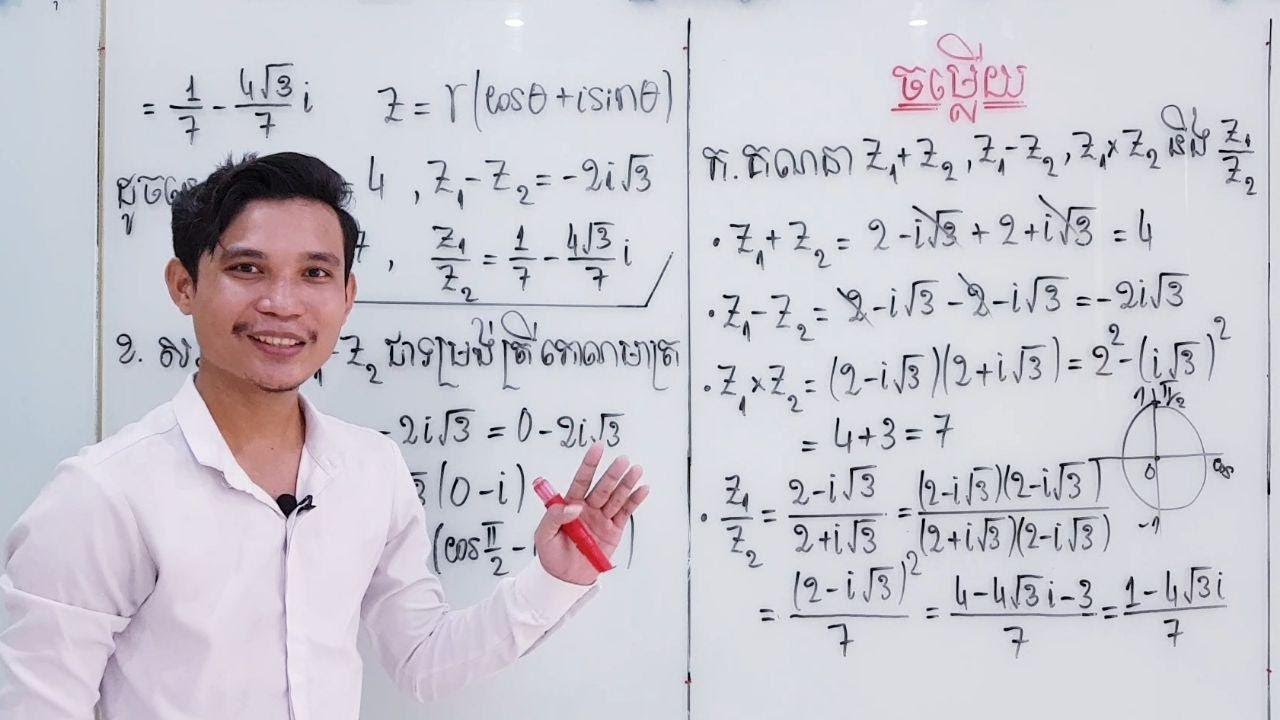 = 1/7 - 4√3/7 i    Z = r(cosθ + isinθ)
4 , Z₁ - Z₂ = -2i√3
7 , Z₁/Z₂ = 1/7 - 4√3/7 i
ខ. ស Z₂ ជាទម្រង់ត្រីកោណមាត្រ
-2i√3 = 0 - 2i√3
(0 - i)
(cos π/2 -
ចម្លើយ
ក. គណនា Z₁ + Z₂ , Z₁ - Z₂ , Z₁ × Z₂ និង Z₁/Z₂
• Z₁ + Z₂ = 2 - i√3 + 2 + i√3 = 4
• Z₁ - Z₂ = 2 - i√3 - 2 - i√3 = -2i√3
• Z₁ × Z₂ = (2 - i√3)(2 + i√3) = 2² - (i√3)²
= 4 + 3 = 7
1 π/2
0
-1
• Z₁/Z₂ = (2 - i√3)/(2 + i√3) = (2 - i√3)(2 - i√3)/(2 + i√3)(2 - i√3)
= (2 - i√3)²/7 = (4 - 4√3 i - 3)/7 = (1 - 4√3 i)/7